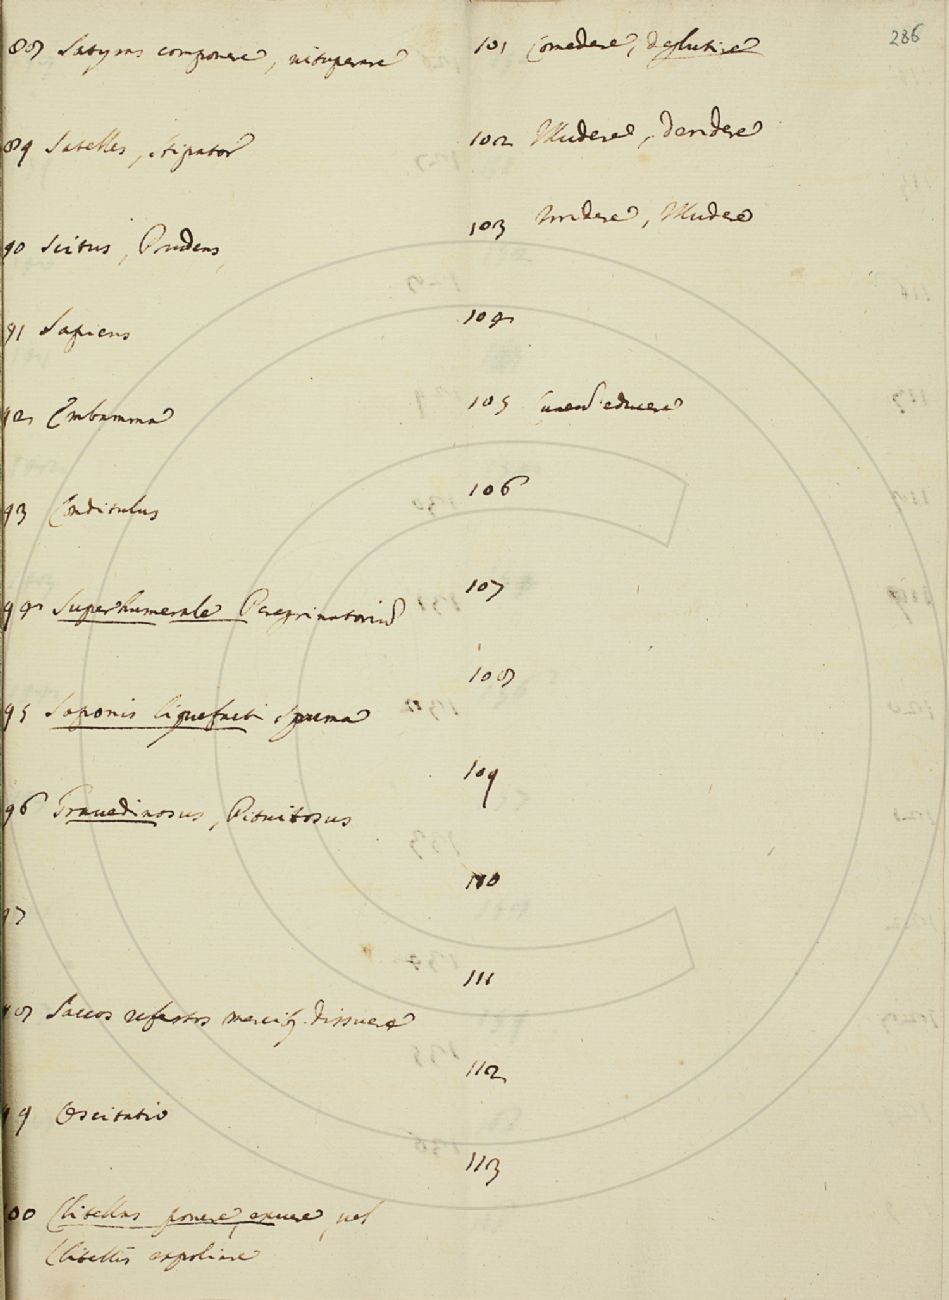 286
88 Satyras componere, vituperare
89 Satelles, stipator
90 Scitus, Prudens
91 Sapiens
92 Embamma
93 Conditulus
94 Superhumerale Peregrinatoriũ
95 Saponis liquefacti spuma
96 Gravedinosus, Pituitosus
97
98 Saccos refertos mercib9 dissuere
99 Oscitatio
100 Clitellas ponere, exuere, vel
Clitellis expoliare
101 Comedere, deglutire
102 Illudere, deridere
103 Irridere, Illudere
104
105 educere
106
107
108
109
110
111
112
113